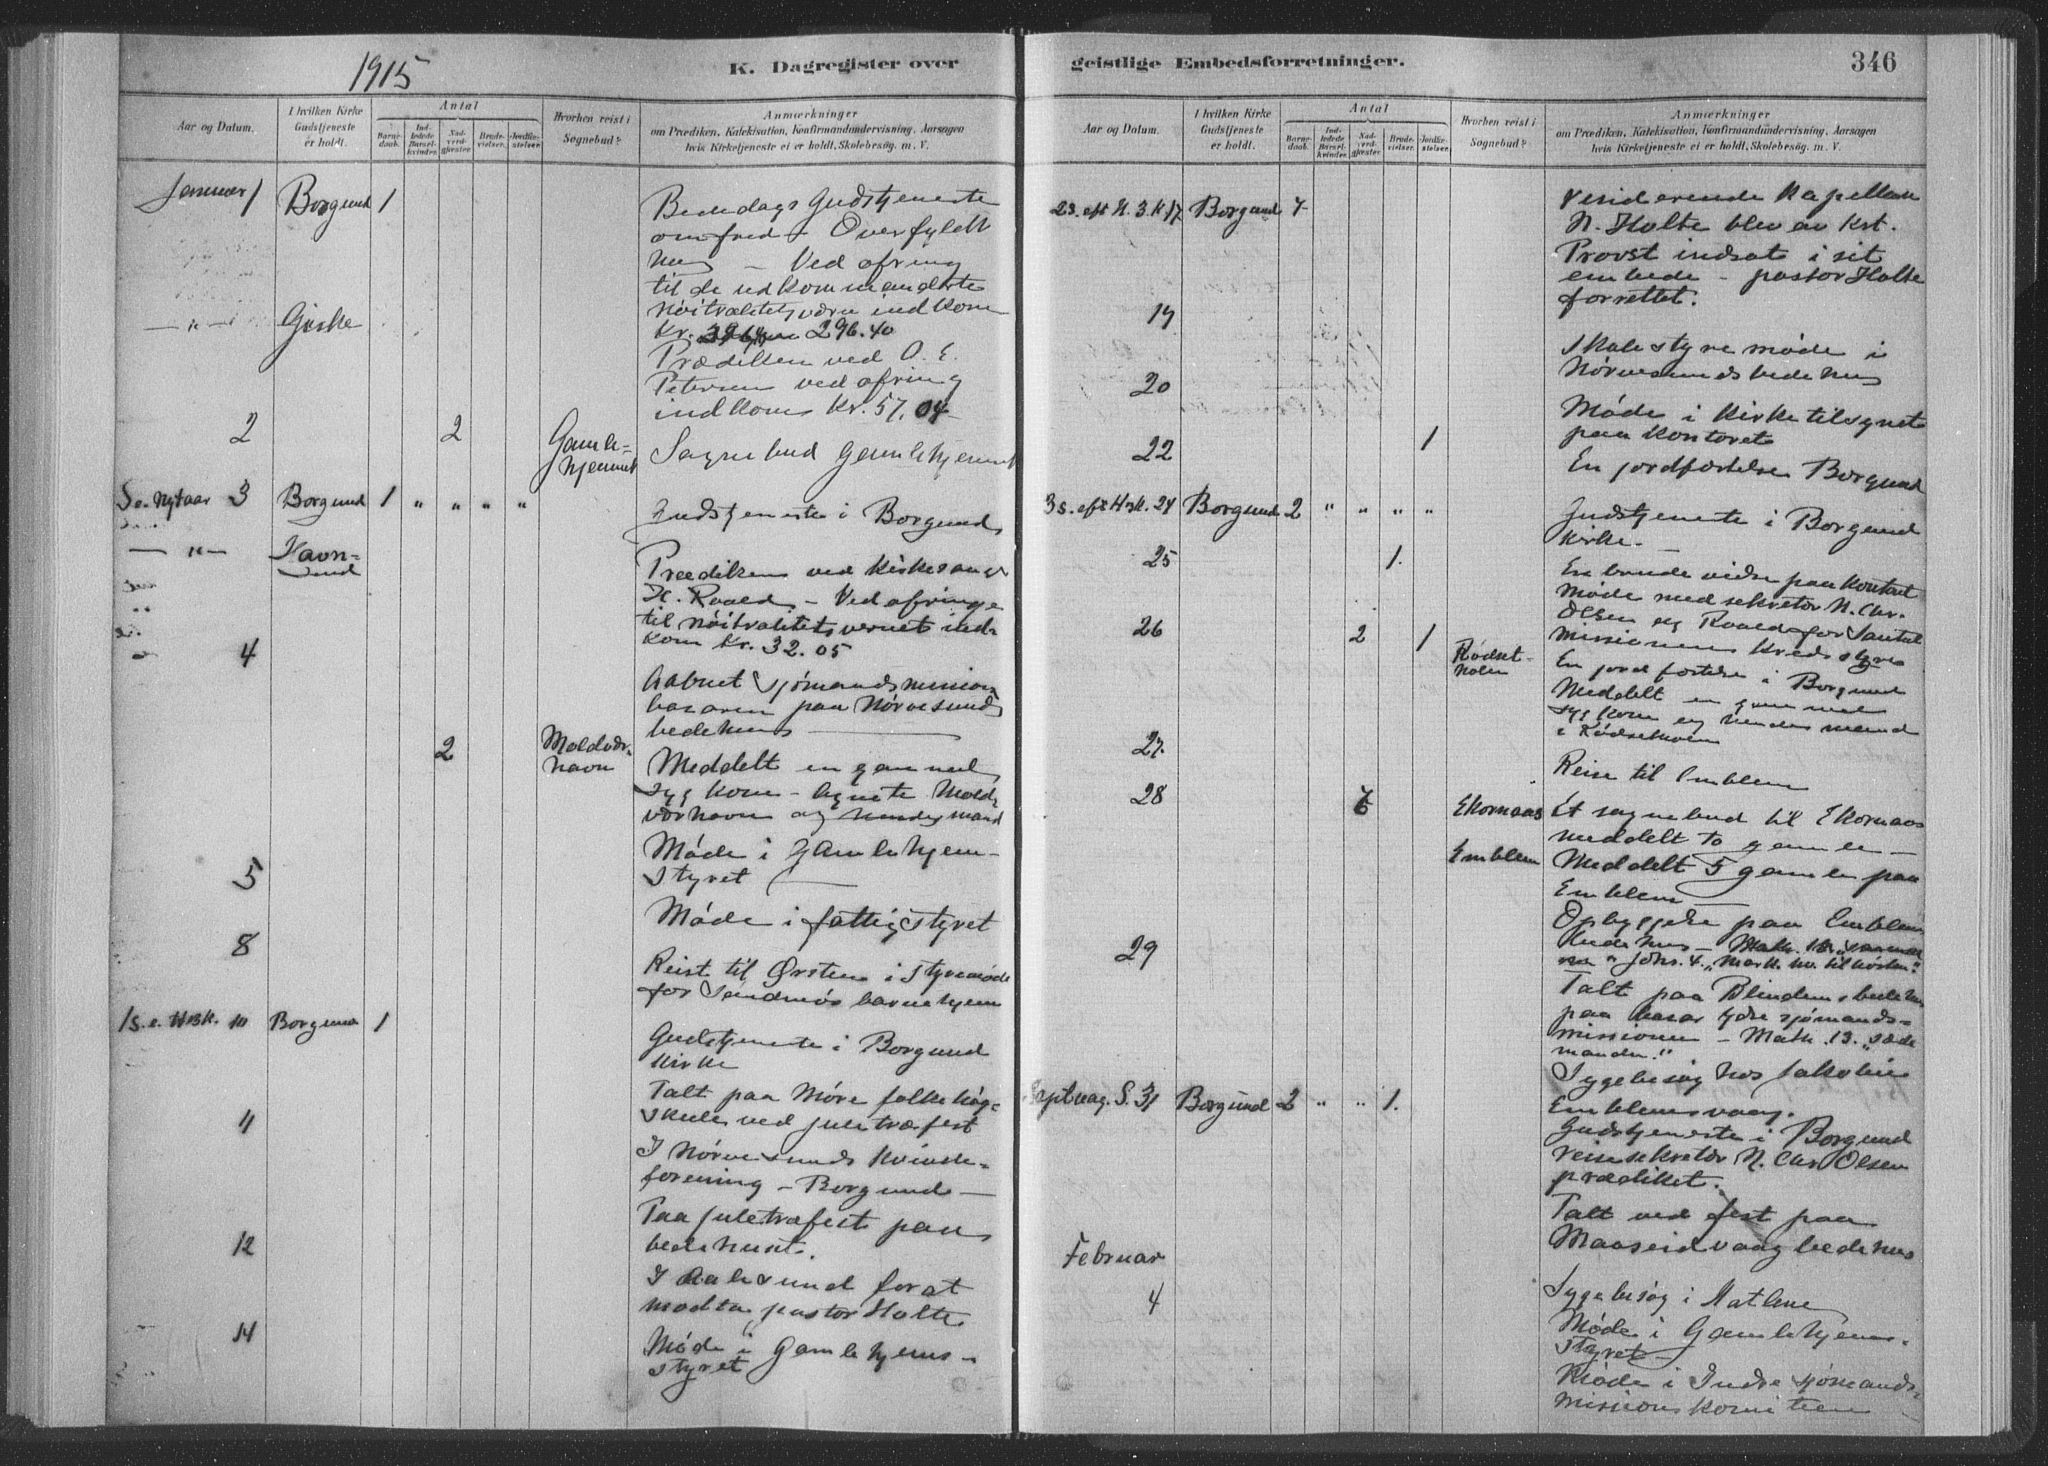 1915
K. Dagregister over
Aar og Datum.
I hvilken Kirke
Gudstjeneste
er holdt.
Antal
Barne-
daab.
Ind-
ledede
Barsel-
kvinder.
Nad-
verd-
gjæster
Brude-
vielser.
Jordfæ-
stelser.
Hvorhen reist i
Sognebud?
Anmærkninger
om Prædiken, Katekisation, Konfirmandundervisning, Aarsagen
hvis Kirketjeneste ei er holdt, Skolebesøg. m. V.
Januar 1 Borgund 1 Bededags Gudstjeneste
om fred - Overfyldt
hus - Ved ofring
til de udkommanderte
nøitralitetsværn indkom
Kr. 296.40
— " — Giske
Prædiken ved O. E.
Petersen ved ofring
indkom Kr. 57,04
2 2 Gamle-
hjemmet Sognebud Gamlehjemmet
S. e. Nytaar 3 Borgund 1 " " " " Gudstjeneste i Borgund
— " — Havn-
sund Prædiken ved kirkesanger
H. Roald - Ved ofringen
til nøitralitetsvernet ind-
kom Kr. 32.05
4 aabnet Sjømandsmission
basaren paa Nørvesund
bedehus
2 Moldvær-
havn Meddelt en gammel
syg kone - Agnete Mold-
værhavn og hendes mand
Møde i Gamlehjem-
styret
5 Møde i fattigstyret
8 Reist til Ørsten i styremøde
for Søndmøs barnehjem
1 S. e. H3K. 10 Borgund 1 Gudstjeneste i Borgund
Kirke
Talt paa Møre folkehøg-
skule ved juletræfest
11 I Nørvesunds Kvinde-
forening - Borgund -
Paa juletræfest paa
bedehuset.
12 I Aalesund forat
modta pastor Holte
14 Møde i Gamlehjems-
styret
geistlige Embedsforretninger.
346
Aar og Datum.
I hvilken Kirke
Gudstjeneste
er holdt.
Antal
Barne-
daab.
Ind-
ledede
Barsel-
kvinder.
Nad-
verd-
gjæster
Brude-
vielser.
Jordfæ-
stelser.
Hvorhen reist i
Sognebud?
Anmærkninger
om Prædiken, Katekisation, Konfirmandundervisning, Aarsagen
hvis Kirketjeneste ei er holdt, Skolebesøg. m. V.
2 s. eft H. 3. K 17 Borgund 7 residerende Kapellan
N. Holte blev av Kst.
Provst indsat i sit
embede - pastor Holte
forrettet.
19 Skolestyremøde i
Nørvesunds bedehus
20 Møde i Kirketilsynet
paa Kontoret
22 1 En jordfæstelse Borgund
3 s. eft H3K. 24 Borgund 2 " " " " Gudstjeneste i Borgund
Kirke. —
25 1. En brudevielse paa Kontoret
Møde med sekretær N. Chr.
Olsen og Roald for Santal
missionens Kredsstyre
26 2 1 Rødset-
holen En jordfæstelse i Borgund
Meddelt en gammel
syg kone og hendes mand
i Rødsetholen
27. Reise til Emblem
28 7 Ekornaas Et sognebud til Ekornaas
meddelt to gamle —
Emblem Meddelt 5 gamle paa
Emblem
Opbyggelse paa Emblem
bedehus - Math. 13
Joh. 4. "Mark. hv. til høsten."
29 Talt paa Blindemsbedehus
paa basar Indre sjømands-
missionen - Math. 13. "Sæde
manden."
Sygebesøg hos Jakobine
Emblemsvaag.
Septuag. S. 31 Borgund 2 " " 1. Gudstjeneste i Borgund
reisesekretær N. Chr Olsen
prædiket.
Talt ved fest paa
Maaseidvaag bedehus
Februar
4 Sygebesøg i Katlene
Møde i Gamlehjems-
styret —
Møde i Indre sjømands-
missions komiteen